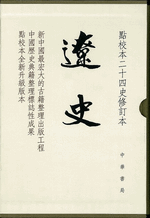 點校本二十四史修訂本
遼史
新中國最宏大的古籍整理出版工程
中國歷史典籍整理標誌性成果
點校本全新升級版本
中華書局